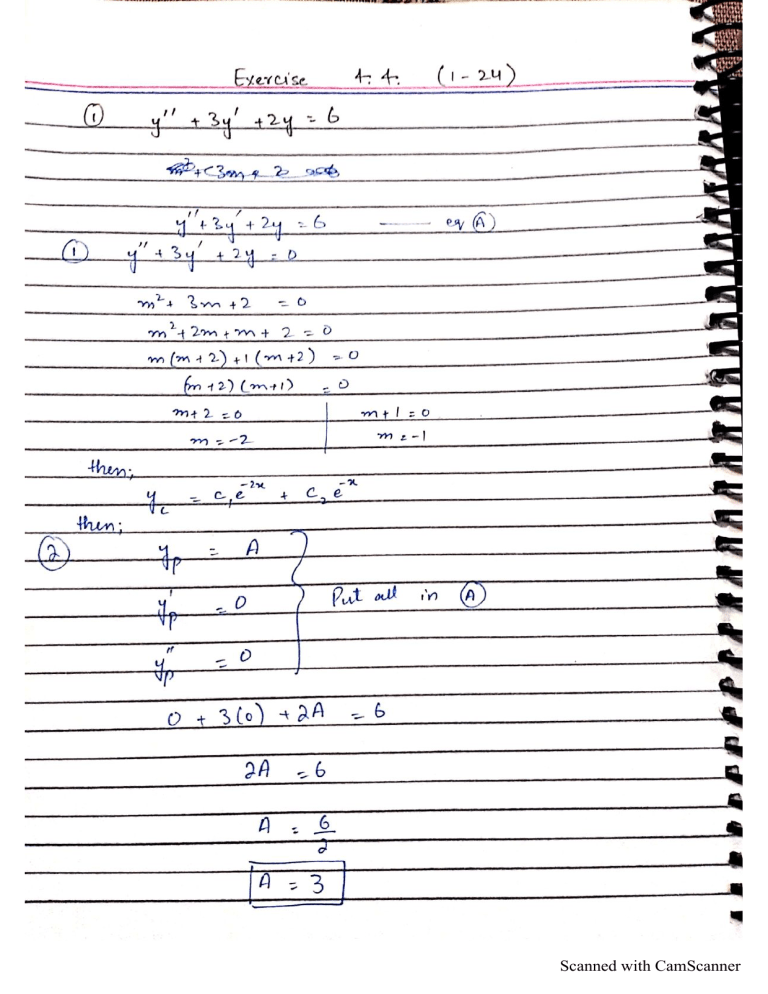 Exercise 4.4. (1-24)
① y'' + 3y' + 2y = 6
y'' + 3y' + 2y = 6 —— eq Ⓐ
① y'' + 3y' + 2y = 0
m² + 3m + 2 = 0
m² + 2m + m + 2 = 0
m(m + 2) + 1(m + 2) = 0
(m + 2)(m + 1) = 0
m + 2 = 0 | m + 1 = 0
m = -2 | m = -1
then;
y_c = c₁e^{-2x} + c₂e^{-x}
then;
② y_p = A
y_p' = 0 } Put all in Ⓐ
y_p'' = 0
0 + 3(0) + 2A = 6
2A = 6
A = 6/2
A = 3
Scanned with CamScanner